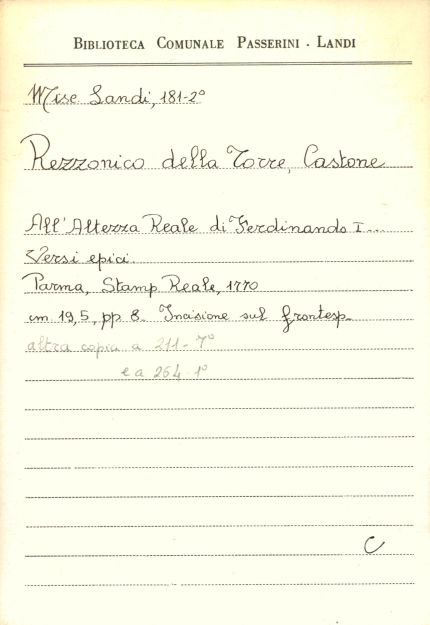 BIBLIOTECA COMUNALE PASSERINI - LANDI
Misc Landi, 181-2°
Rezzonico della Torre, Castone
All'Altezza Reale di Ferdinando I...
Versi epici.
Parma, Stamp. Reale, 1770
cm 19,5, pp. 8. Incisione sul frontesp.
altra copia a 211-7°
e a 264-1°
C